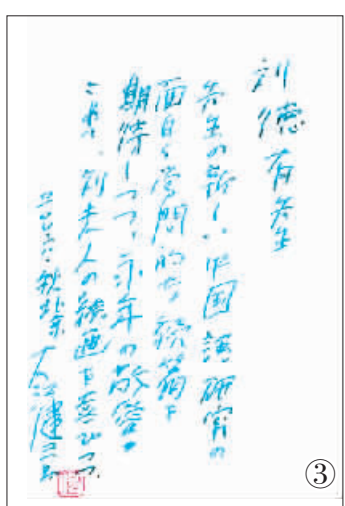 劉徳有先生
先生の新しい中国語研究の
面白く学問的な続篇を
期待しつつ、永年の敬愛を
こめて、劉夫人の繪画を喜びつつ、
二〇〇六・秋北京 大江健三郎
③